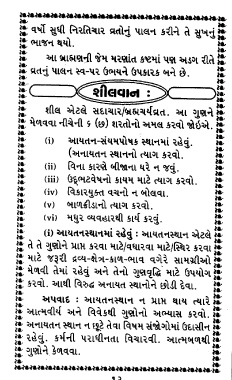 વર્ષો સુધી નિરતિચાર વ્રતોનું પાલન કરીને તે સુખનું
ભાજન થયો.
આ બ્રાહ્મણની જેમ મરણાંત કષ્ટમાં પણ અડગ રીતે
વ્રતનું પાલન સ્વ-પર ઉભયને ઉપકારક બને છે.
શીલવાન :
શીલ એટલે સદાચાર/બ્રહ્મચર્યવ્રત. આ ગુણને
મેળવવા નીચેની ૬ (છ) શરતોનો અમલ કરવો જોઇએ.
(i) આયતન-સંયમપોષક સ્થાનમાં રહેવું.
(અનાયતન સ્થાનનો ત્યાગ કરવો.
(ii) વિના કારણે બીજાના ઘરે ન જવું.
(iii) ઉદ્ભટવેષનો કાયમ માટે ત્યાગ કરવો.
(iv) વિકારયુક્ત વચનો ન બોલવા.
(v) બાળક્રીડાનો ત્યાગ કરવો.
(vi) મધુર વ્યવહારથી કાર્ય કરવું.
(i) આયતનસ્થાનમાં રહેવું : આયતનસ્થાન એટલે
તે તે ગુણોને પ્રાપ્ત કરવા માટે/વધારવા માટે/સ્થિર કરવા
માટે જરૂરી દ્રવ્ય-ક્ષેત્ર-કાળ-ભાવ વગેરે સામગ્રીઓ
મેળવી તેમાં રહેવું અને તેનો ગુણવૃદ્ધિ માટે ઉપયોગ
કરવો. આથી વિરુદ્ધ અનાયત સ્થાનોને છોડી દેવા.
અપવાદ : આયતનસ્થાન ન પ્રાપ્ત થાય ત્યારે
આત્મવીર્ય અને વિવેકથી ગુણોનો અભ્યાસ કરવો.
અનાયતન સ્થાન ન છૂટે તેવા વિષમ સંજોગોમાં ઉદાસીન
રહેવું. કર્મની પરાધીનતા વિચારવી. આત્મબળથી
ગુણોને કેળવવા.